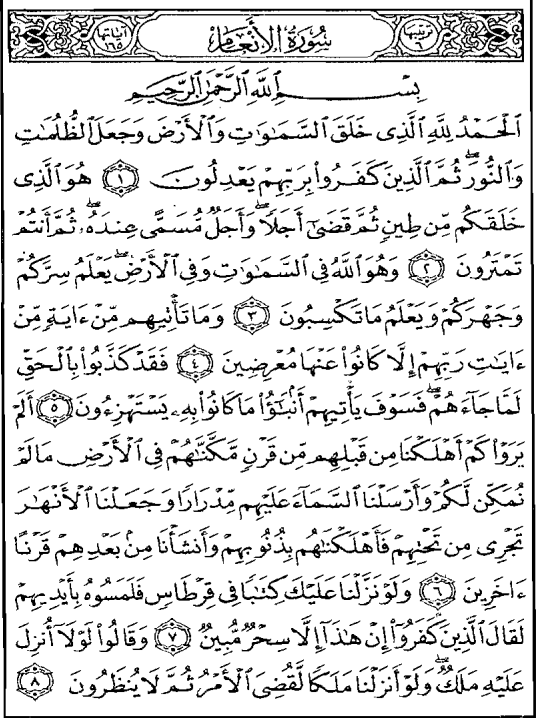 ترتيبها ٦ سُورَةُ الأَنْعَامِ آياتها ١٦٥
بِسْمِ ٱللَّهِ ٱلرَّحْمَٰنِ ٱلرَّحِيمِ
ٱلْحَمْدُ لِلَّهِ ٱلَّذِى خَلَقَ ٱلسَّمَٰوَٰتِ وَٱلْأَرْضَ وَجَعَلَ ٱلظُّلُمَٰتِ
وَٱلنُّورَۖ ثُمَّ ٱلَّذِينَ كَفَرُوا۟ بِرَبِّهِمْ يَعْدِلُونَ ١ هُوَ ٱلَّذِى
خَلَقَكُم مِّن طِينٍ ثُمَّ قَضَىٰٓ أَجَلًاۖ وَأَجَلٌ مُّسَمًّى عِندَهُۥۖ ثُمَّ أَنتُمْ
تَمْتَرُونَ ٢ وَهُوَ ٱللَّهُ فِى ٱلسَّمَٰوَٰتِ وَفِى ٱلْأَرْضِۖ يَعْلَمُ سِرَّكُمْ
وَجَهْرَكُمْ وَيَعْلَمُ مَا تَكْسِبُونَ ٣ وَمَا تَأْتِيهِم مِّنْ ءَايَةٍ مِّنْ
ءَايَٰتِ رَبِّهِمْ إِلَّا كَانُوا۟ عَنْهَا مُعْرِضِينَ ٤ فَقَدْ كَذَّبُوا۟ بِٱلْحَقِّ
لَمَّا جَآءَهُمْۖ فَسَوْفَ يَأْتِيهِمْ أَنۢبَٰٓؤُا۟ مَا كَانُوا۟ بِهِۦ يَسْتَهْزِءُونَ ٥ أَلَمْ
يَرَوْا۟ كَمْ أَهْلَكْنَا مِن قَبْلِهِم مِّن قَرْنٍ مَّكَّنَّٰهُمْ فِى ٱلْأَرْضِ مَا لَمْ
نُمَكِّن لَّكُمْ وَأَرْسَلْنَا ٱلسَّمَآءَ عَلَيْهِم مِّدْرَارًا وَجَعَلْنَا ٱلْأَنْهَٰرَ
تَجْرِى مِن تَحْتِهِمْ فَأَهْلَكْنَٰهُم بِذُنُوبِهِمْ وَأَنشَأْنَا مِنۢ بَعْدِهِمْ قَرْنًا
ءَاخَرِينَ ٦ وَلَوْ نَزَّلْنَا عَلَيْكَ كِتَٰبًا فِى قِرْطَاسٍ فَلَمَسُوهُ بِأَيْدِيهِمْ
لَقَالَ ٱلَّذِينَ كَفَرُوٓا۟ إِنْ هَٰذَآ إِلَّا سِحْرٌ مُّبِينٌ ٧ وَقَالُوا۟ لَوْلَآ أُنزِلَ
عَلَيْهِ مَلَكٌۖ وَلَوْ أَنزَلْنَا مَلَكًا لَّقُضِىَ ٱلْأَمْرُ ثُمَّ لَا يُنظَرُونَ ٨